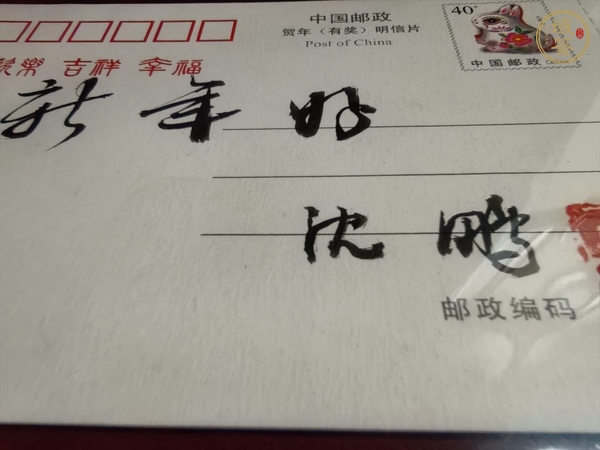 中国邮政
40分
贺年（有奖）明信片
Post of China
中国邮政
欢樂 吉祥 幸福
新年好
沈鹏
邮政编码